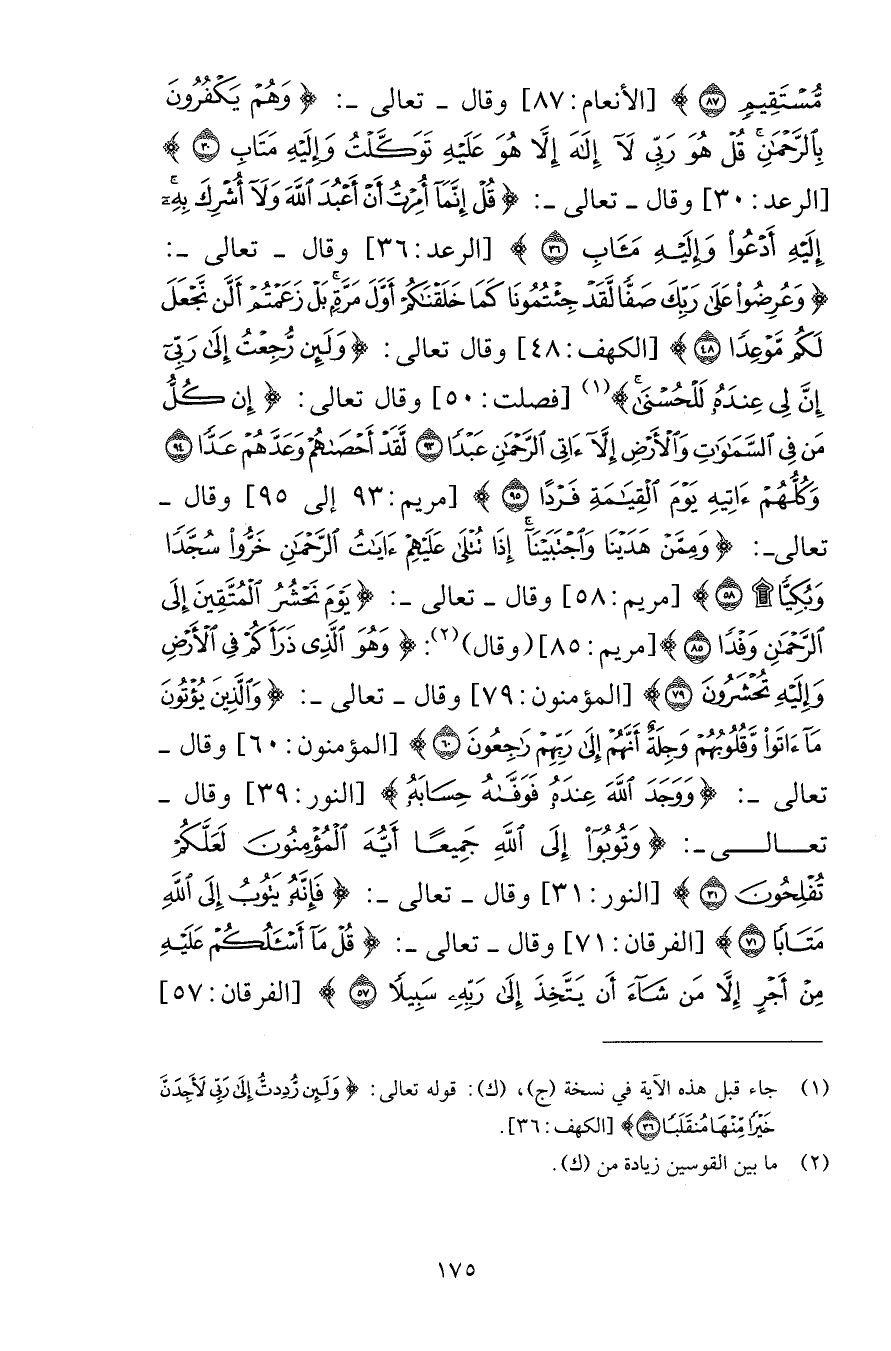 مُّسْتَقِيمٍ ﴿٨٧﴾ ﴾ [الأنعام: ٨٧] وقال ـ تعالى ـ: ﴿ وَهُمْ يَكْفُرُونَ
بِٱلرَّحْمَٰنِ ۚ قُلْ هُوَ رَبِّى لَآ إِلَٰهَ إِلَّا هُوَ عَلَيْهِ تَوَكَّلْتُ وَإِلَيْهِ مَتَابِ ﴿٣٠﴾ ﴾
[الرعد: ٣٠] وقال ـ تعالى ـ: ﴿ قُلْ إِنَّمَآ أُمِرْتُ أَنْ أَعْبُدَ ٱللَّهَ وَلَآ أُشْرِكَ بِهِۦٓ ۚ
إِلَيْهِ أَدْعُوا۟ وَإِلَيْهِ مَـَٔابِ ﴿٣٦﴾ ﴾ [الرعد: ٣٦] وقال ـ تعالى ـ:
﴿ وَعُرِضُوا۟ عَلَىٰ رَبِّكَ صَفًّا لَّقَدْ جِئْتُمُونَا كَمَا خَلَقْنَٰكُمْ أَوَّلَ مَرَّةٍۭ ۚ بَلْ زَعَمْتُمْ أَلَّن نَّجْعَلَ
لَكُم مَّوْعِدًا ﴿٤٨﴾ ﴾ [الكهف: ٤٨] وقال تعالى: ﴿ وَلَئِن رُّجِعْتُ إِلَىٰ رَبِّىٓ
إِنَّ لِى عِندَهُۥ لَلْحُسْنَىٰ ۚ ﴾(١) [فصلت: ٥٠] وقال تعالى: ﴿ إِن كُلُّ
مَن فِى ٱلسَّمَٰوَٰتِ وَٱلْأَرْضِ إِلَّآ ءَاتِى ٱلرَّحْمَٰنِ عَبْدًا ﴿٩٣﴾ لَّقَدْ أَحْصَىٰهُمْ وَعَدَّهُمْ عَدًّا ﴿٩٤﴾
وَكُلُّهُمْ ءَاتِيهِ يَوْمَ ٱلْقِيَٰمَةِ فَرْدًا ﴿٩٥﴾ ﴾ [مريم: ٩٣ إلى ٩٥] وقال ـ
تعالى ـ: ﴿ وَمِمَّنْ هَدَيْنَا وَٱجْتَبَيْنَآ ۚ إِذَا تُتْلَىٰ عَلَيْهِمْ ءَايَٰتُ ٱلرَّحْمَٰنِ خَرُّوا۟ سُجَّدًا
وَبُكِيًّا ۩ ﴿٥٨﴾ ﴾ [مريم: ٥٨] وقال ـ تعالى ـ: ﴿ يَوْمَ نَحْشُرُ ٱلْمُتَّقِينَ إِلَى
ٱلرَّحْمَٰنِ وَفْدًا ﴿٨٥﴾ ﴾ [مريم: ٨٥] (وقال)(٢): ﴿ وَهُوَ ٱلَّذِى ذَرَأَكُمْ فِى ٱلْأَرْضِ
وَإِلَيْهِ تُحْشَرُونَ ﴿٧٩﴾ ﴾ [المؤمنون: ٧٩] وقال ـ تعالى ـ: ﴿ وَٱلَّذِينَ يُؤْتُونَ
مَآ ءَاتَوا۟ وَّقُلُوبُهُمْ وَجِلَةٌ أَنَّهُمْ إِلَىٰ رَبِّهِمْ رَٰجِعُونَ ﴿٦٠﴾ ﴾ [المؤمنون: ٦٠] وقال ـ
تعالى ـ: ﴿ وَوَجَدَ ٱللَّهَ عِندَهُۥ فَوَفَّىٰهُ حِسَابَهُۥ ﴾ [النور: ٣٩] وقال ـ
تعـــالـــى ـ: ﴿ وَتُوبُوٓا۟ إِلَى ٱللَّهِ جَمِيعًا أَيُّهَ ٱلْمُؤْمِنُونَ لَعَلَّكُمْ
تُفْلِحُونَ ﴿٣١﴾ ﴾ [النور: ٣١] وقال ـ تعالى ـ: ﴿ فَإِنَّهُۥ يَتُوبُ إِلَى ٱللَّهِ
مَتَابًا ﴿٧١﴾ ﴾ [الفرقان: ٧١] وقال ـ تعالى ـ: ﴿ قُلْ مَآ أَسْـَٔلُكُمْ عَلَيْهِ
مِنْ أَجْرٍ إِلَّا مَن شَآءَ أَن يَتَّخِذَ إِلَىٰ رَبِّهِۦ سَبِيلًا ﴿٥٧﴾ ﴾ [الفرقان: ٥٧]
(١) جاء قبل هذه الآية في نسخة (ج)، (ك): قوله تعالى: ﴿ وَلَئِن رُّدِدتُّ إِلَىٰ رَبِّى لَأَجِدَنَّ
خَيْرًا مِّنْهَا مُنقَلَبًا ﴿٣٦﴾ ﴾ [الكهف: ٣٦].
(٢) ما بين القوسين زيادة من (ك).
١٧٥